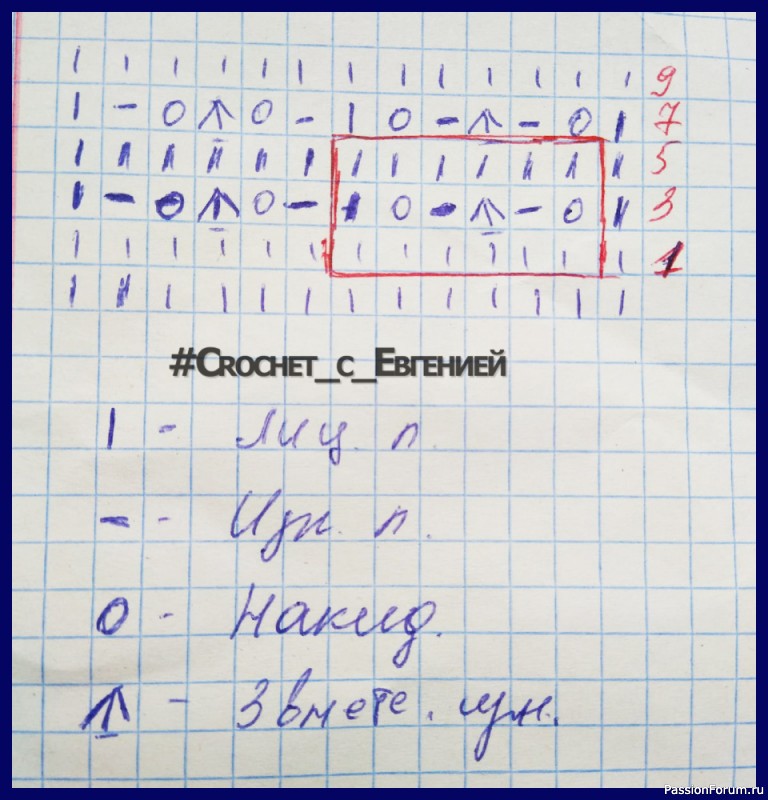 I I I I I I I I I I I I I 9
I - O ↑ O - I O - ↑ - O I 7
I I I I I I I I I I I I I 5
I - O ↑ O - I O - ↑ - O I 3
I I I I I I I I I I I I I 1
I I I I I I I I I I I I I
#Crochet_с_Евгенией
I - лиц. п.
- - Изн. п.
O - Накид.
↑ - 3 вмете. изн.
PassionForum.ru